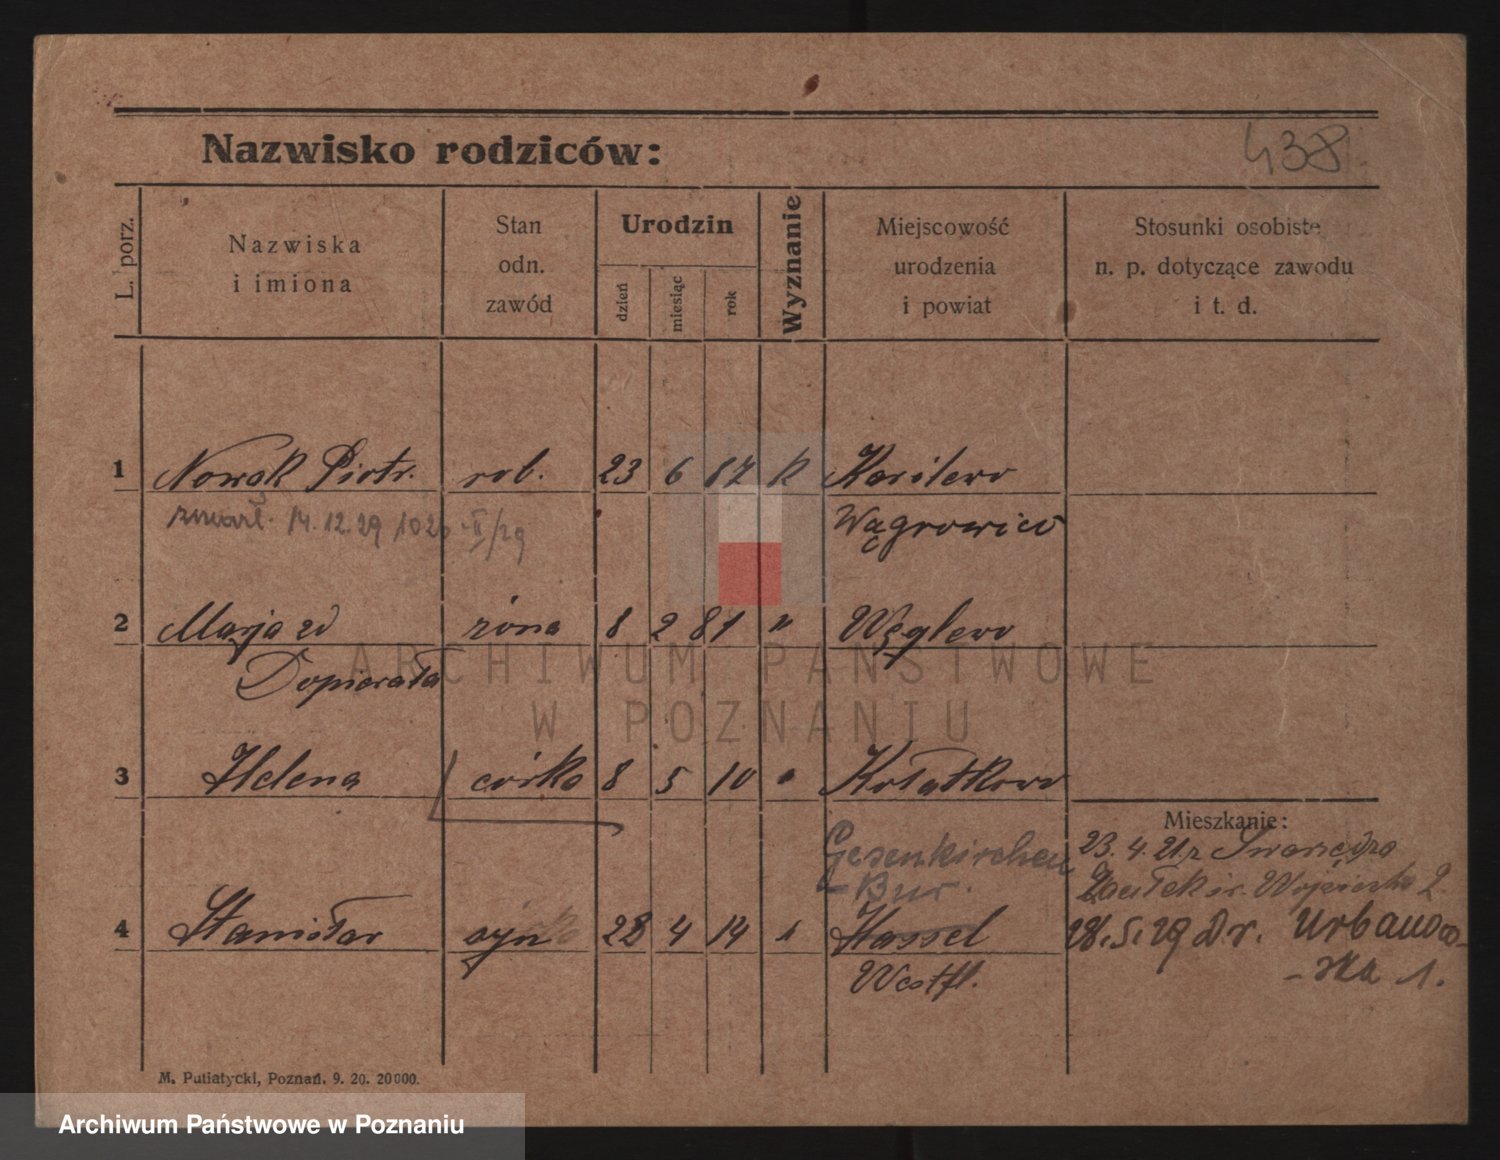 438
Nazwisko rodziców:
L. porz.
Nazwiska
i imiona
Stan
odn.
zawód
Urodzin
dzień
miesiąc
rok
Wyznanie
Miejscowość
urodzenia
i powiat
Stosunki osobiste
n. p. dotyczące zawodu
i t. d.
1 Nowak Piotr. rob. 23 6 87 k
zmarł. 14.12.29 1020 II/29 Wągrowiec
2 Marja zd żona 8 2 81 " Węglewo
Dopierała
ARCHIWUM PAŃSTWOWE
W POZNANIU
3 Helena córka 8 5 10 " Kołatkowo
Mieszkanie:
23.4.21 z Swarzędza
Gesenkirchen
Zaułek św. Wojciecha 2.
Bur.
4 Stanisław syn 28 4 14 Hassel
28.5.29 Dr. Urbanow-
Westfl.
-ska 1.
M. Putiatycki, Poznań. 9. 20. 20000.
Archiwum Państwowe w Poznaniu